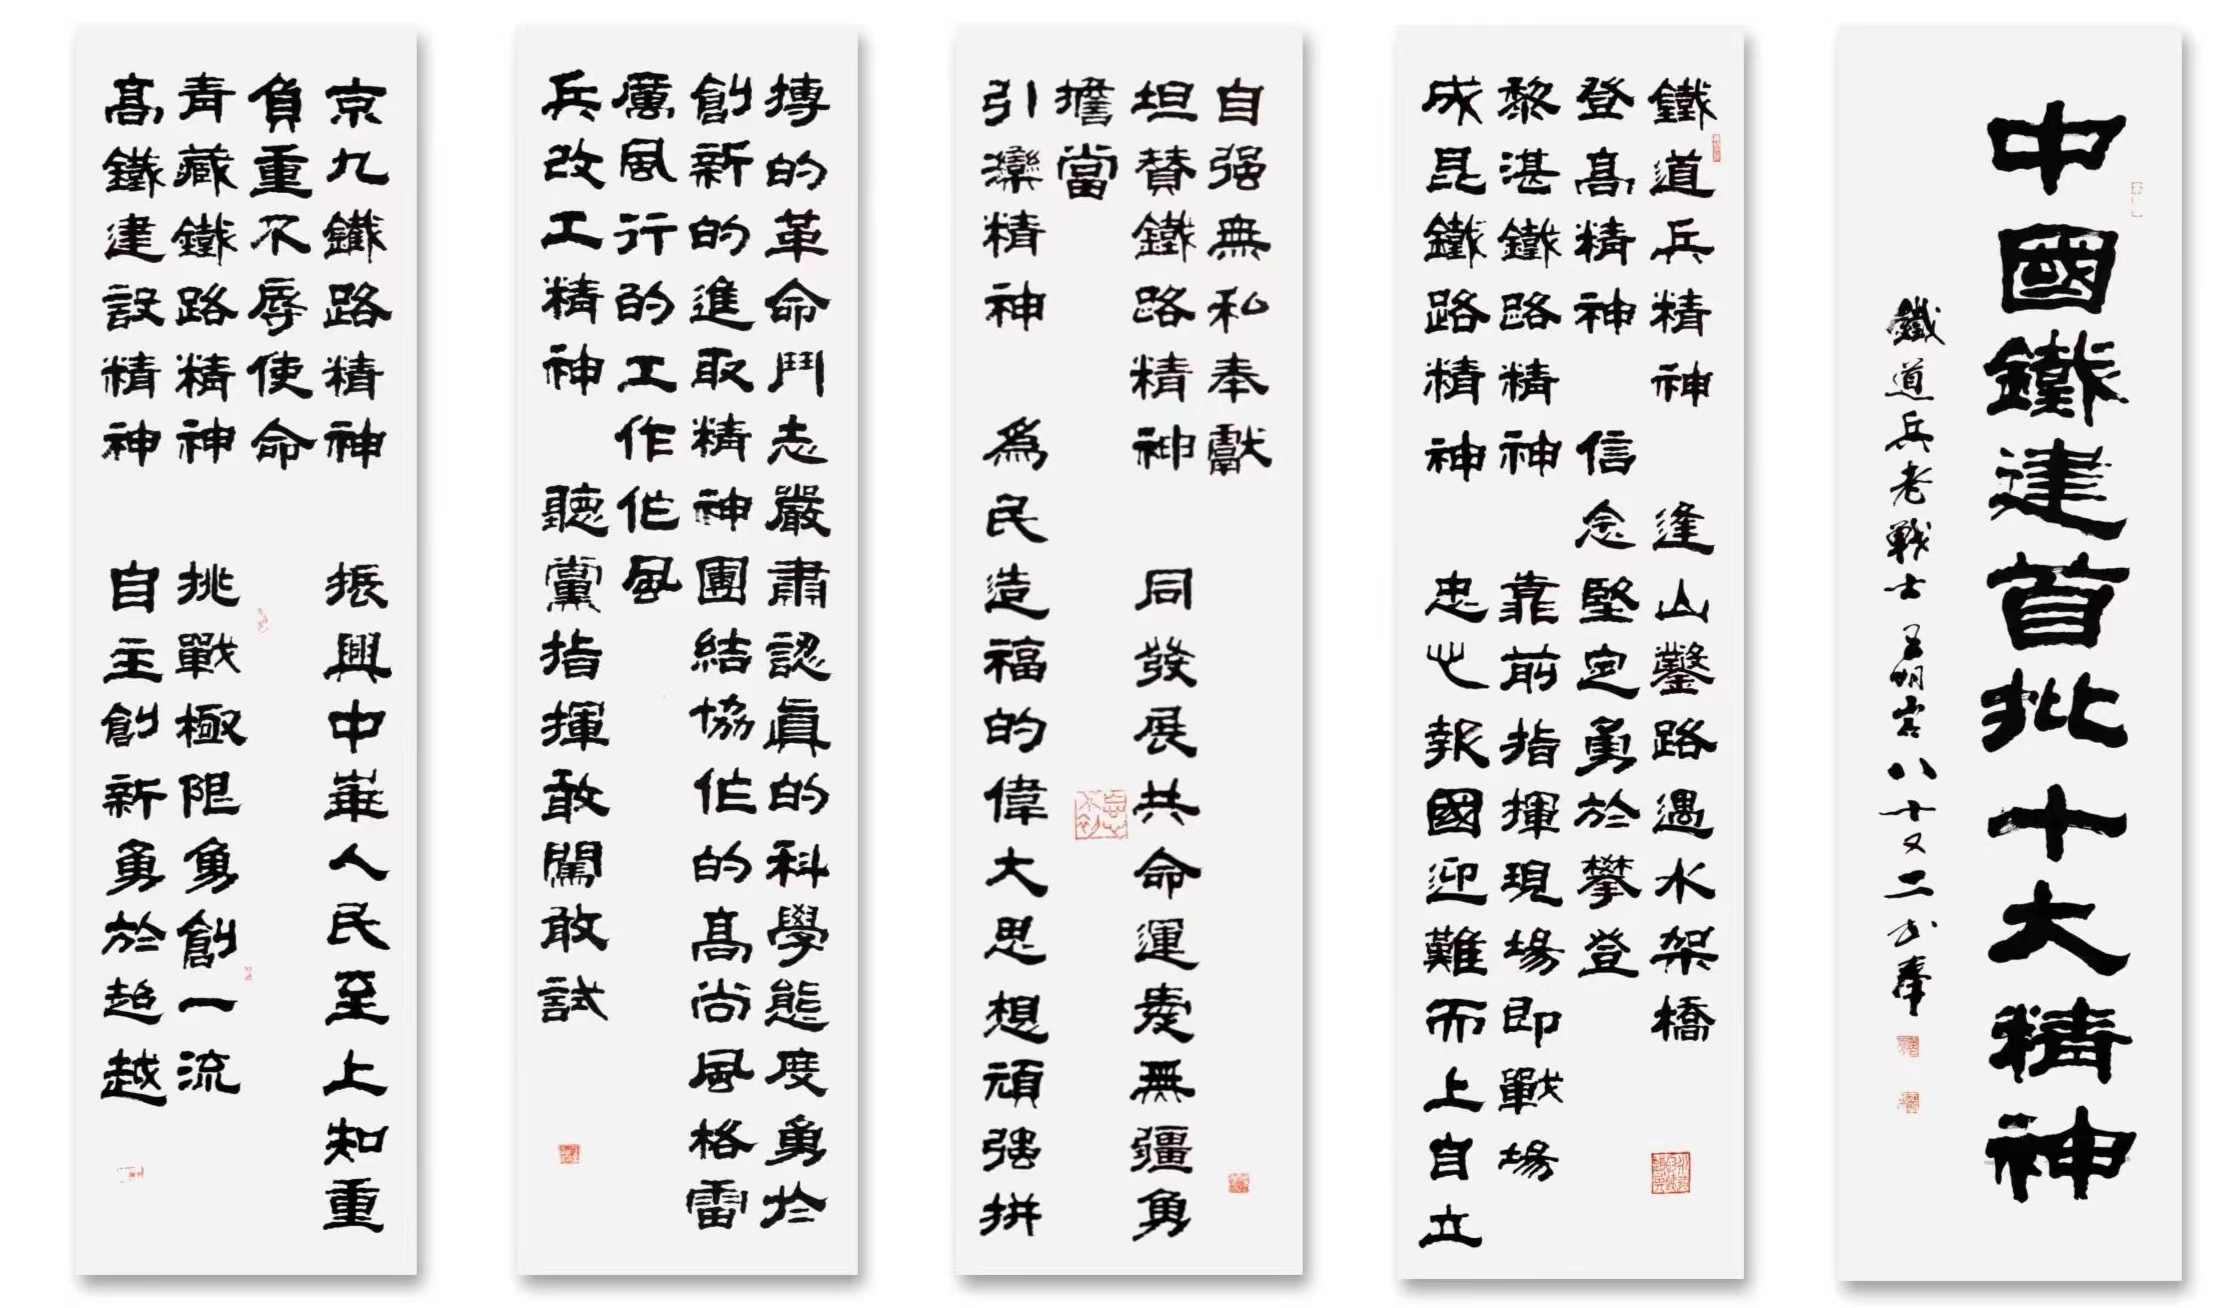 中國鐵建首批十大精神
鐵道兵老戰士 八十又二 奉
鐵道兵精神 逢山鑿路遇水架橋
登高精神 信念堅定勇於攀登
黎湛鐵路精神 靠前指揮現場即戰場
成昆鐵路精神 忠心報國迎難而上自立
自强無私奉獻
坦贊鐵路精神 同發展共命運愛無疆勇
擔當
引灤精神 爲民造福的偉大思想頑强拼
搏的革命鬥志嚴肅認真的科學態度勇於
創新的進取精神團結協作的高尚風格雷
厲風行的工作作風
兵改工精神 聽黨指揮敢闖敢試
京九鐵路精神 振興中華人民至上知重
負重不辱使命
青藏鐵路精神 挑戰極限勇創一流
高鐵建設精神 自主創新勇於超越